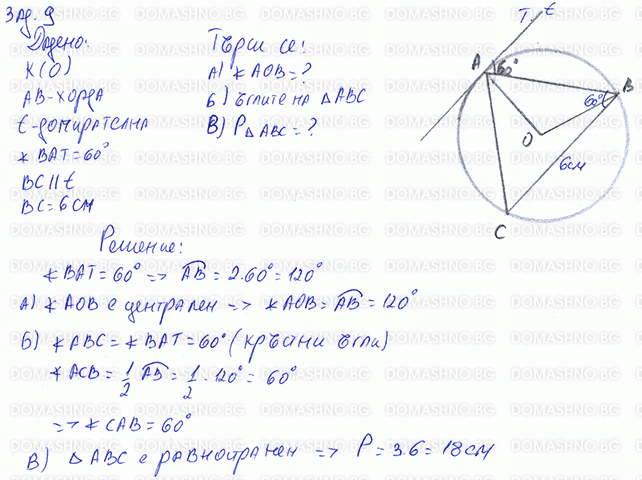 Зад. 9
Дадено:
K(O)
AB-хорда
t-допирателна
∢BAT=60°
BC II t
BC=6см
Търси се:
A) ∢AOB=?
Б) Ъглите на △ABC
В) P△ABC=?
T t
A 60°
B
60°
O
6см
C
Решение:
∢BAT=60° => AB=2.60°=120°
A) ∢AOB е централен => ∢AOB=AB=120°
Б) ∢ABC=∢BAT=60° (кръстни ъгли)
∢ACB=1/2 AB=1/2.120°=60°
=> ∢CAB=60°
В) △ABC е равностранен => P=3.6=18см
DOMASHNO.BG